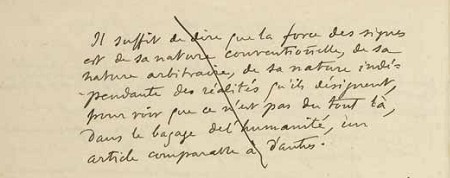 Il suffit de dire que la force des signes
est de sa nature conventionnelle, de sa
nature arbitraire, de sa nature indé-
pendante des réalités qu'ils désignent,
pour voir que ce n'est pas du tout là,
dans le bagage de l'humanité, un
article comparable à d'autres.